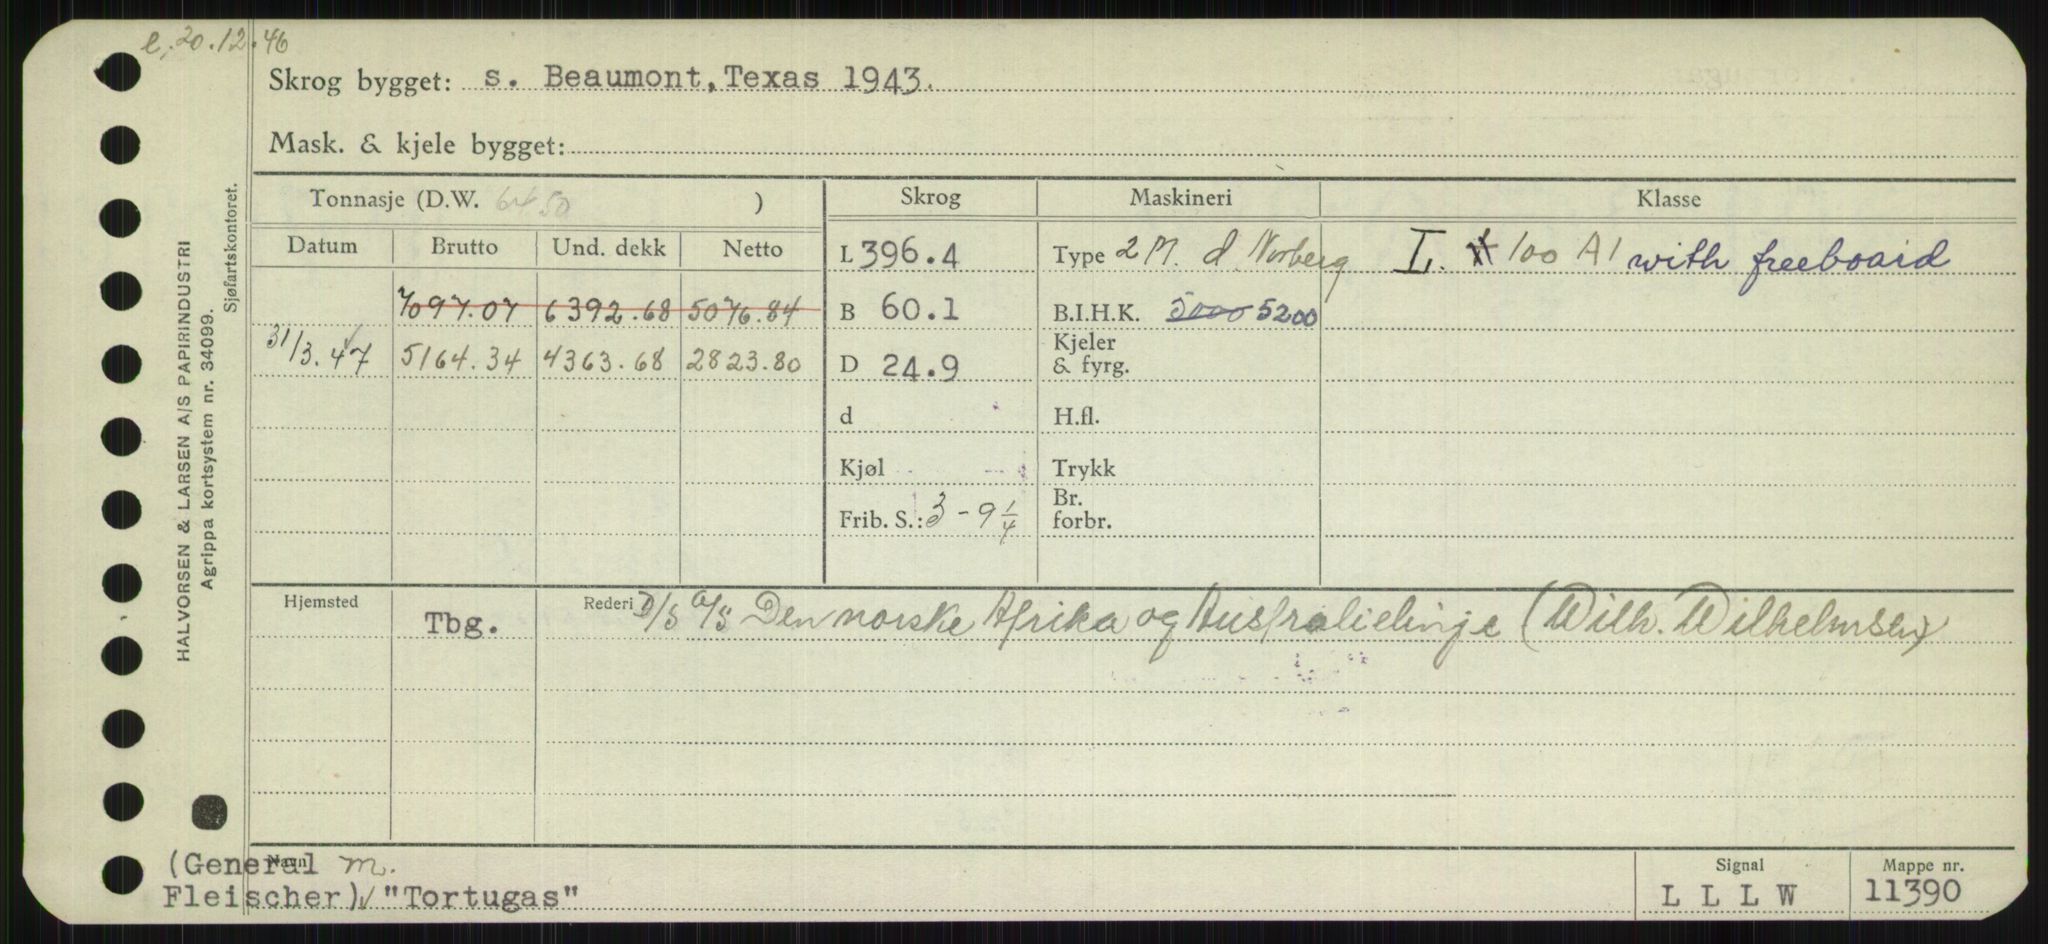 e, 20.12.46
Skrog bygget: s. Beaumont, Texas 1943.
Mask. & kjele bygget:
Tonnasje (D.W. 6450 )
Skrog
Maskineri
Klasse
Datum Brutto Und. dekk Netto
L 396.4
Type 2 M. d. Norberg
L. 100 A1 with freeboard
7097.07 6392.68 5076.84
B 60.1
B.I.H.K. 5000 5200
31/3.47 5164.34 4363.68 2823.80
D 24.9
Kjeler
& fyrg.
d
H.fl.
Kjøl
Trykk
Frib. S.: 3 - 9 1/4
Br.
forbr.
Hjemsted
Tbg.
Rederi D/S A/S Den norske Afrika og Australielinje (Wilh. Wilhelmsen)
Navn
(General m.
Fleischer) "Tortugas"
Signal
L L L W
Mappe nr.
11390
HALVORSEN & LARSEN A/S PAPIRINDUSTRI
Agrippa kortsystem nr. 34099.
Sjøfartskontoret.